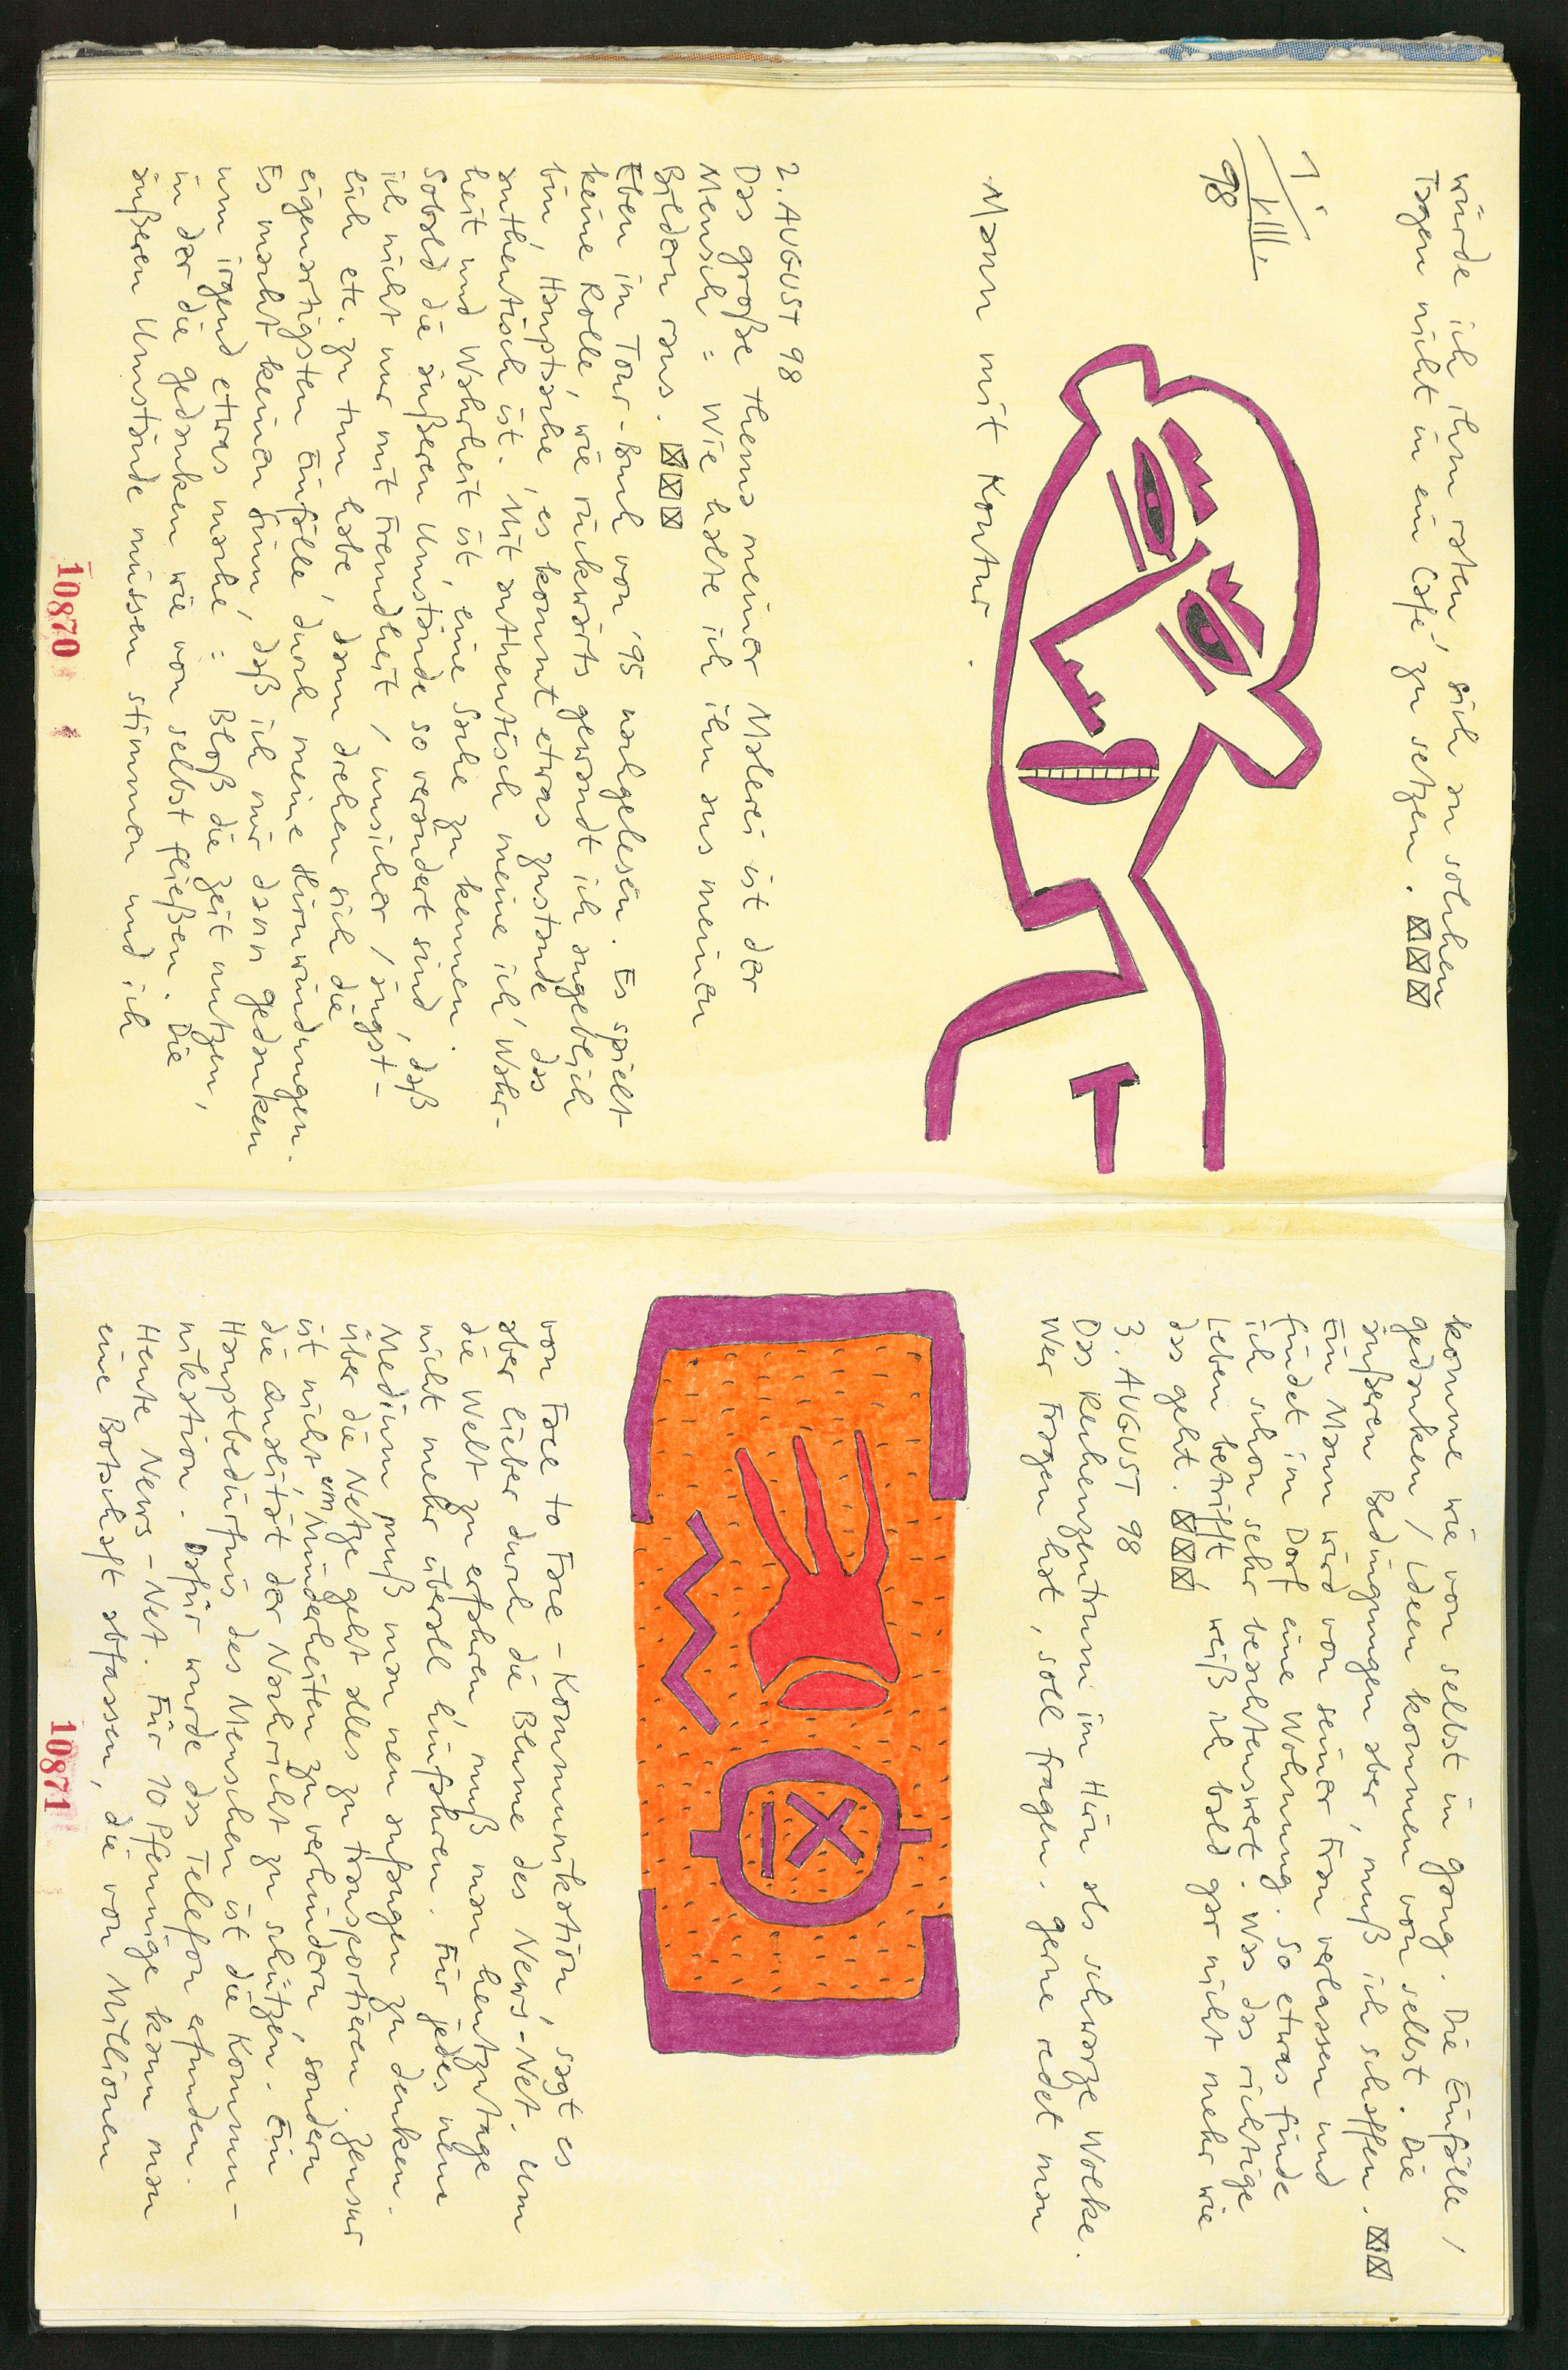 würde ich ihm raten, sich an solchen
Tagen nicht in ein Café zu setzen.
1.
VIII.
98
Mann mit Kontur.
2. AUGUST 98
Das große Thema meiner Malerei ist der
Mensch: Wie halte ich ihn aus meinen
Bildern raus.
Eben im Tour-Buch von '95 nachgelesen. Es spielt
keine Rolle, wie rückwärts gewandt ich angeblich
bin, Hauptsache, es kommt etwas zustande das
authentisch ist. Mit authentisch meine ich Wahr-
heit und Wahrheit ist, eine Sache zu kennen.
Sobald die äußeren Umstände so verändert sind, daß
ich nicht nur mit Fremdheit / unsicher / ängst-
lich etc. zu tun habe, dann drehen sich die
eigenartigsten Einfälle durch meine Hirnwindungen.
Es macht keinen Sinn, daß ich mir dann gedanken
um irgend etwas mache: Bloß die Zeit nutzen,
in der die gedanken wie von selbst fließen. Die
äußeren Umstände müssen stimmen und ich
10870
komme wie von selbst in gang. Die Einfälle /
gedanken / Ideen kommen von selbst. Die
äußeren Bedingungen aber, muß ich schaffen.
Ein Mann wird von seiner Frau verlassen und
findet im Dorf eine Wohnung. So etwas finde
ich schon sehr beachtenswert. Was das richtige
Leben betrifft, weiß ich bald gar nicht mehr wie
das geht.
3. AUGUST 98
Das Rechenzentrum im Hirn als schwarze Wolke.
Wer Fragen hat, soll fragen. gerne redet man
von Face to Face-Kommunikation, sagt es
aber lieber durch die Blume des News-Net. Um
die Welt zu erfahren, muß man heutzutage
nicht mehr überall hinfahren. Für jedes neue
Medium muß man neu anfangen zu denken.
über die Netze geht alles zu transportieren. Zensur
ist nicht, um Minderheiten zu verhindern, sondern
die Qualität der Nachricht zu schützen. Ein
Hauptbedürfnis des Menschen ist die Kommu-
nikation. Dafür wurde das Telefon erfunden.
Heute News-Net. Für 10 Pfennige kann man
eine Botschaft abfassen, die von Millionen
10871